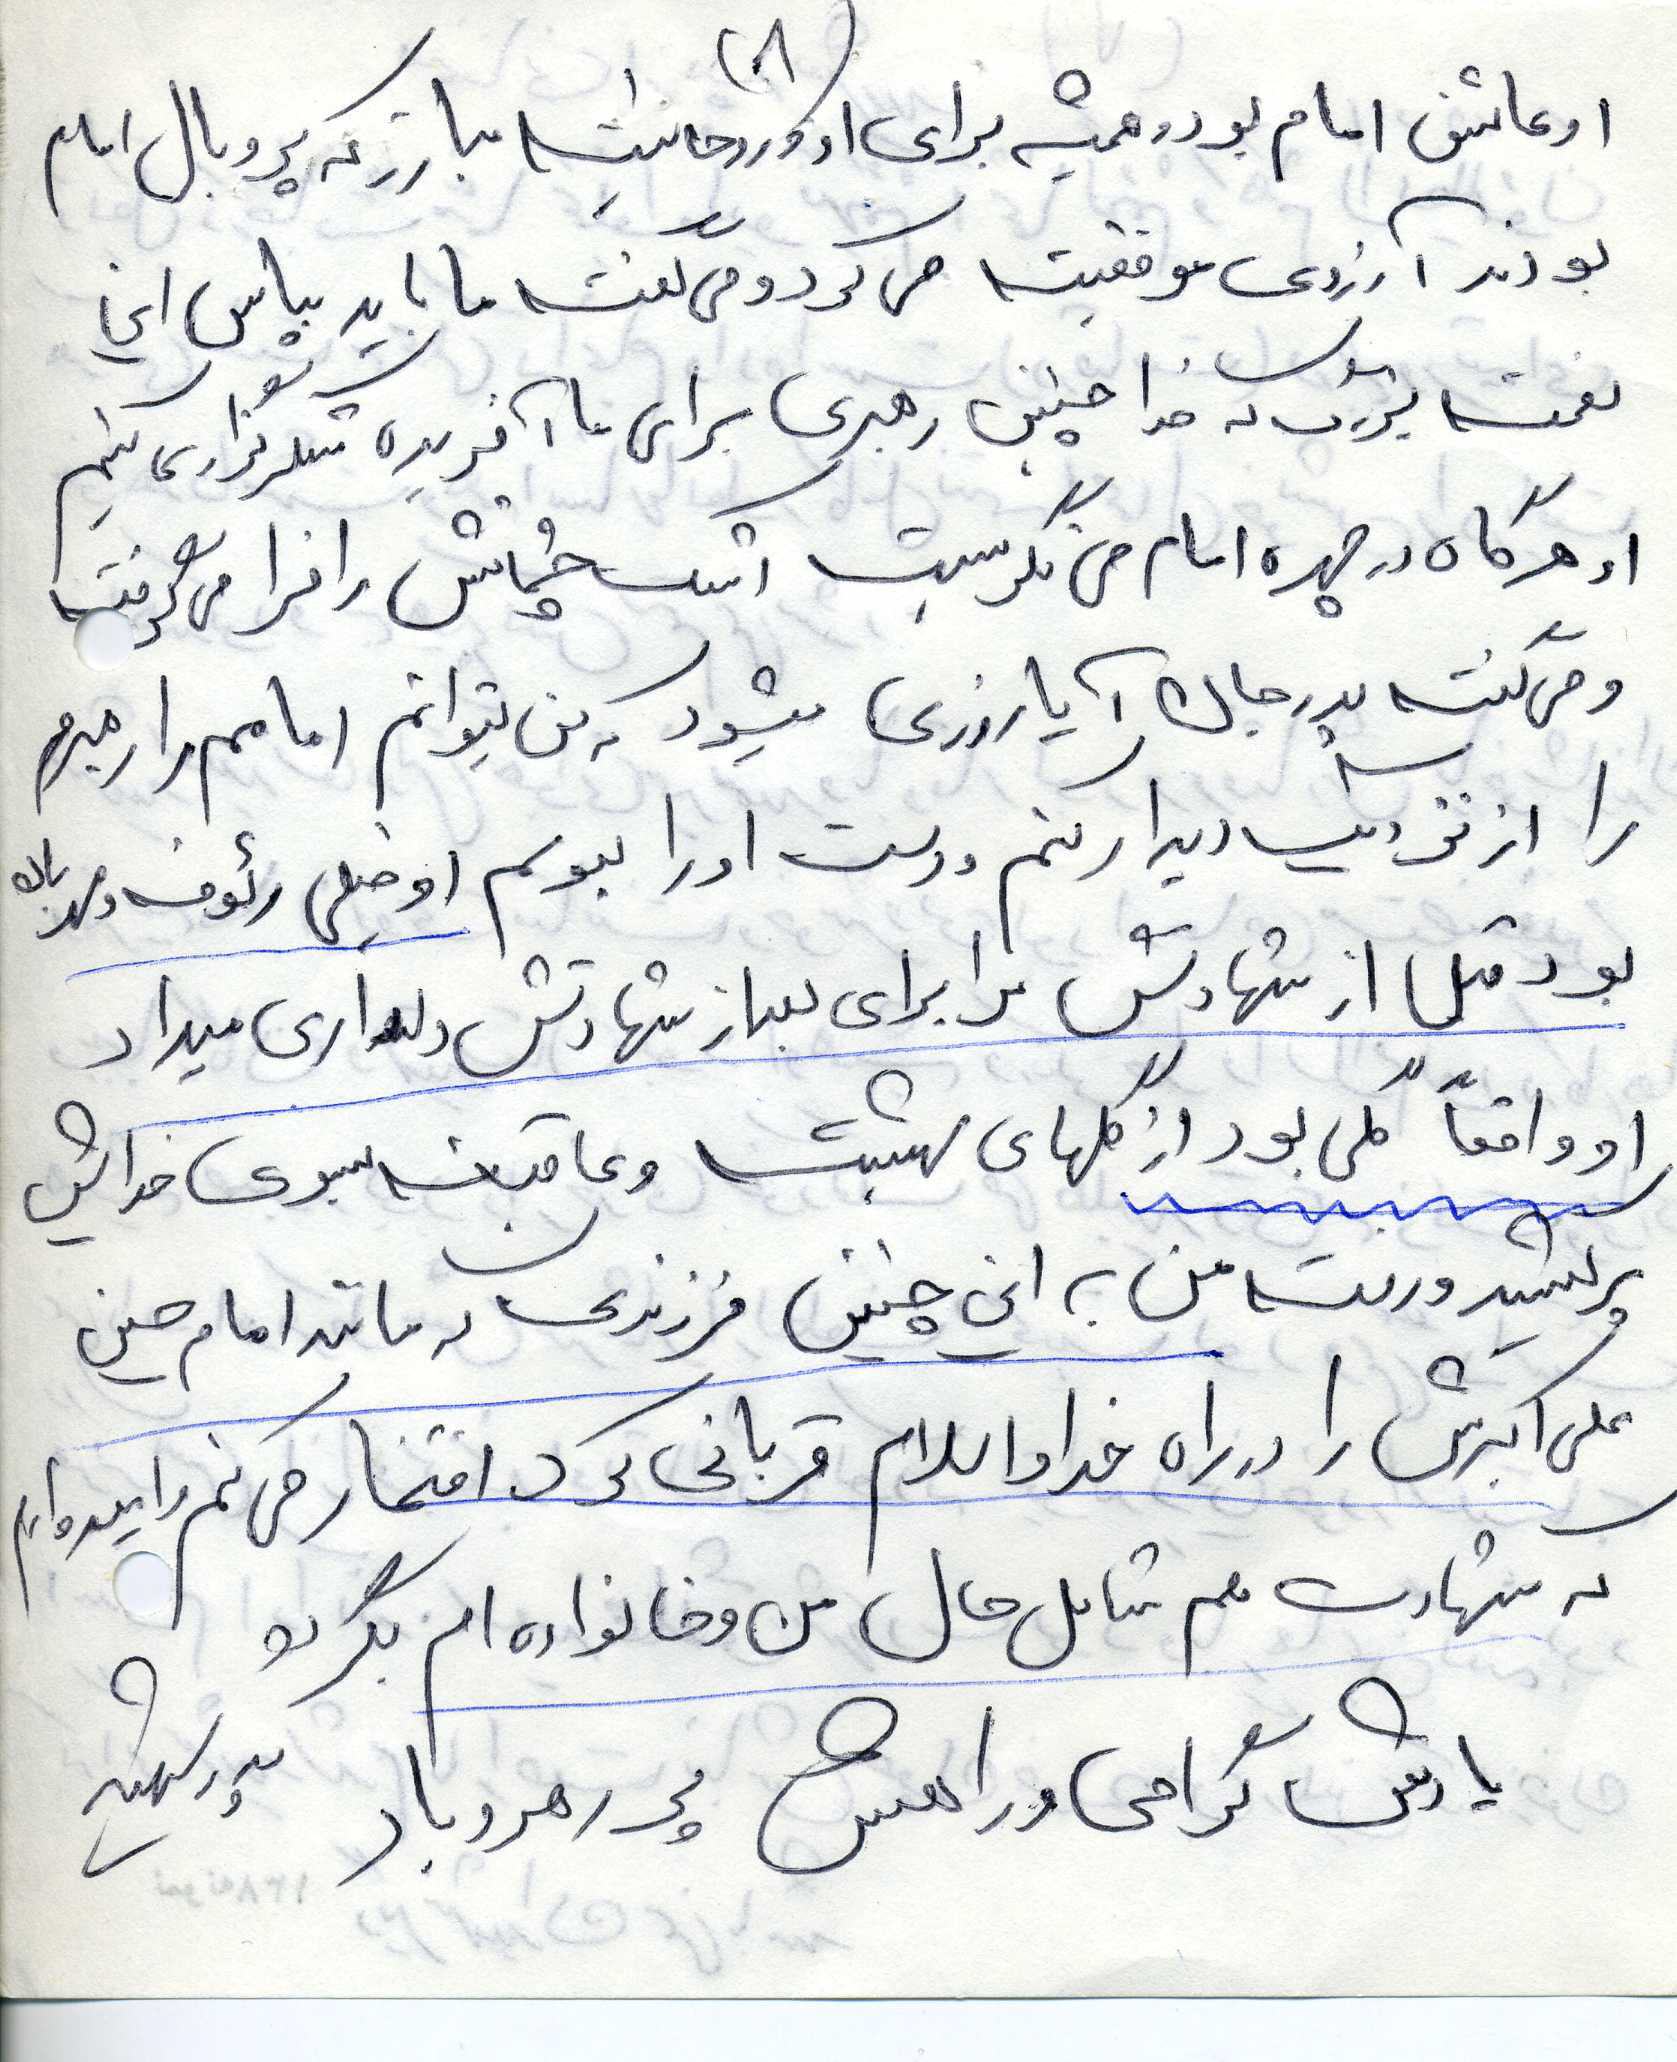 (۸)
او عاشق امام بود و همیشه برای او و روحانیت مبارز که پر و بال امام
بودند آرزوی موفقیت می کرد و می گفت ما باید بپاس این
نعمت بزرگ که خدا چنین رهبری برای ما آفریده شکرگزاری کنیم
او هر گاه در چهره امام می نگریست اشک چشمانش را فرا می گرفت
و می گفت پدر جان آیا روزی میشود که من بتوانم امامم را رهبرم
را از نزدیک دیدار کنم و دست او را ببوسم او خیلی رئوف و مهربان
بود قبل از شهادتش مرا برای بعد از شهادتش دلداری میداد
او واقعاً گلی بود از گلهای بهشت و عاقبت بسوی خدایش
پر کشید و رفت من به این چنین فرزندی که مانند امام حسین
علی اکبرش را در راه خدا و اسلام قربانی کرد افتخار می کنم و امیدوارم
که شهادت هم شامل حال من و خانواده ام بگردد
یادش گرامی و راهش پر رهرو باد پدر شهید